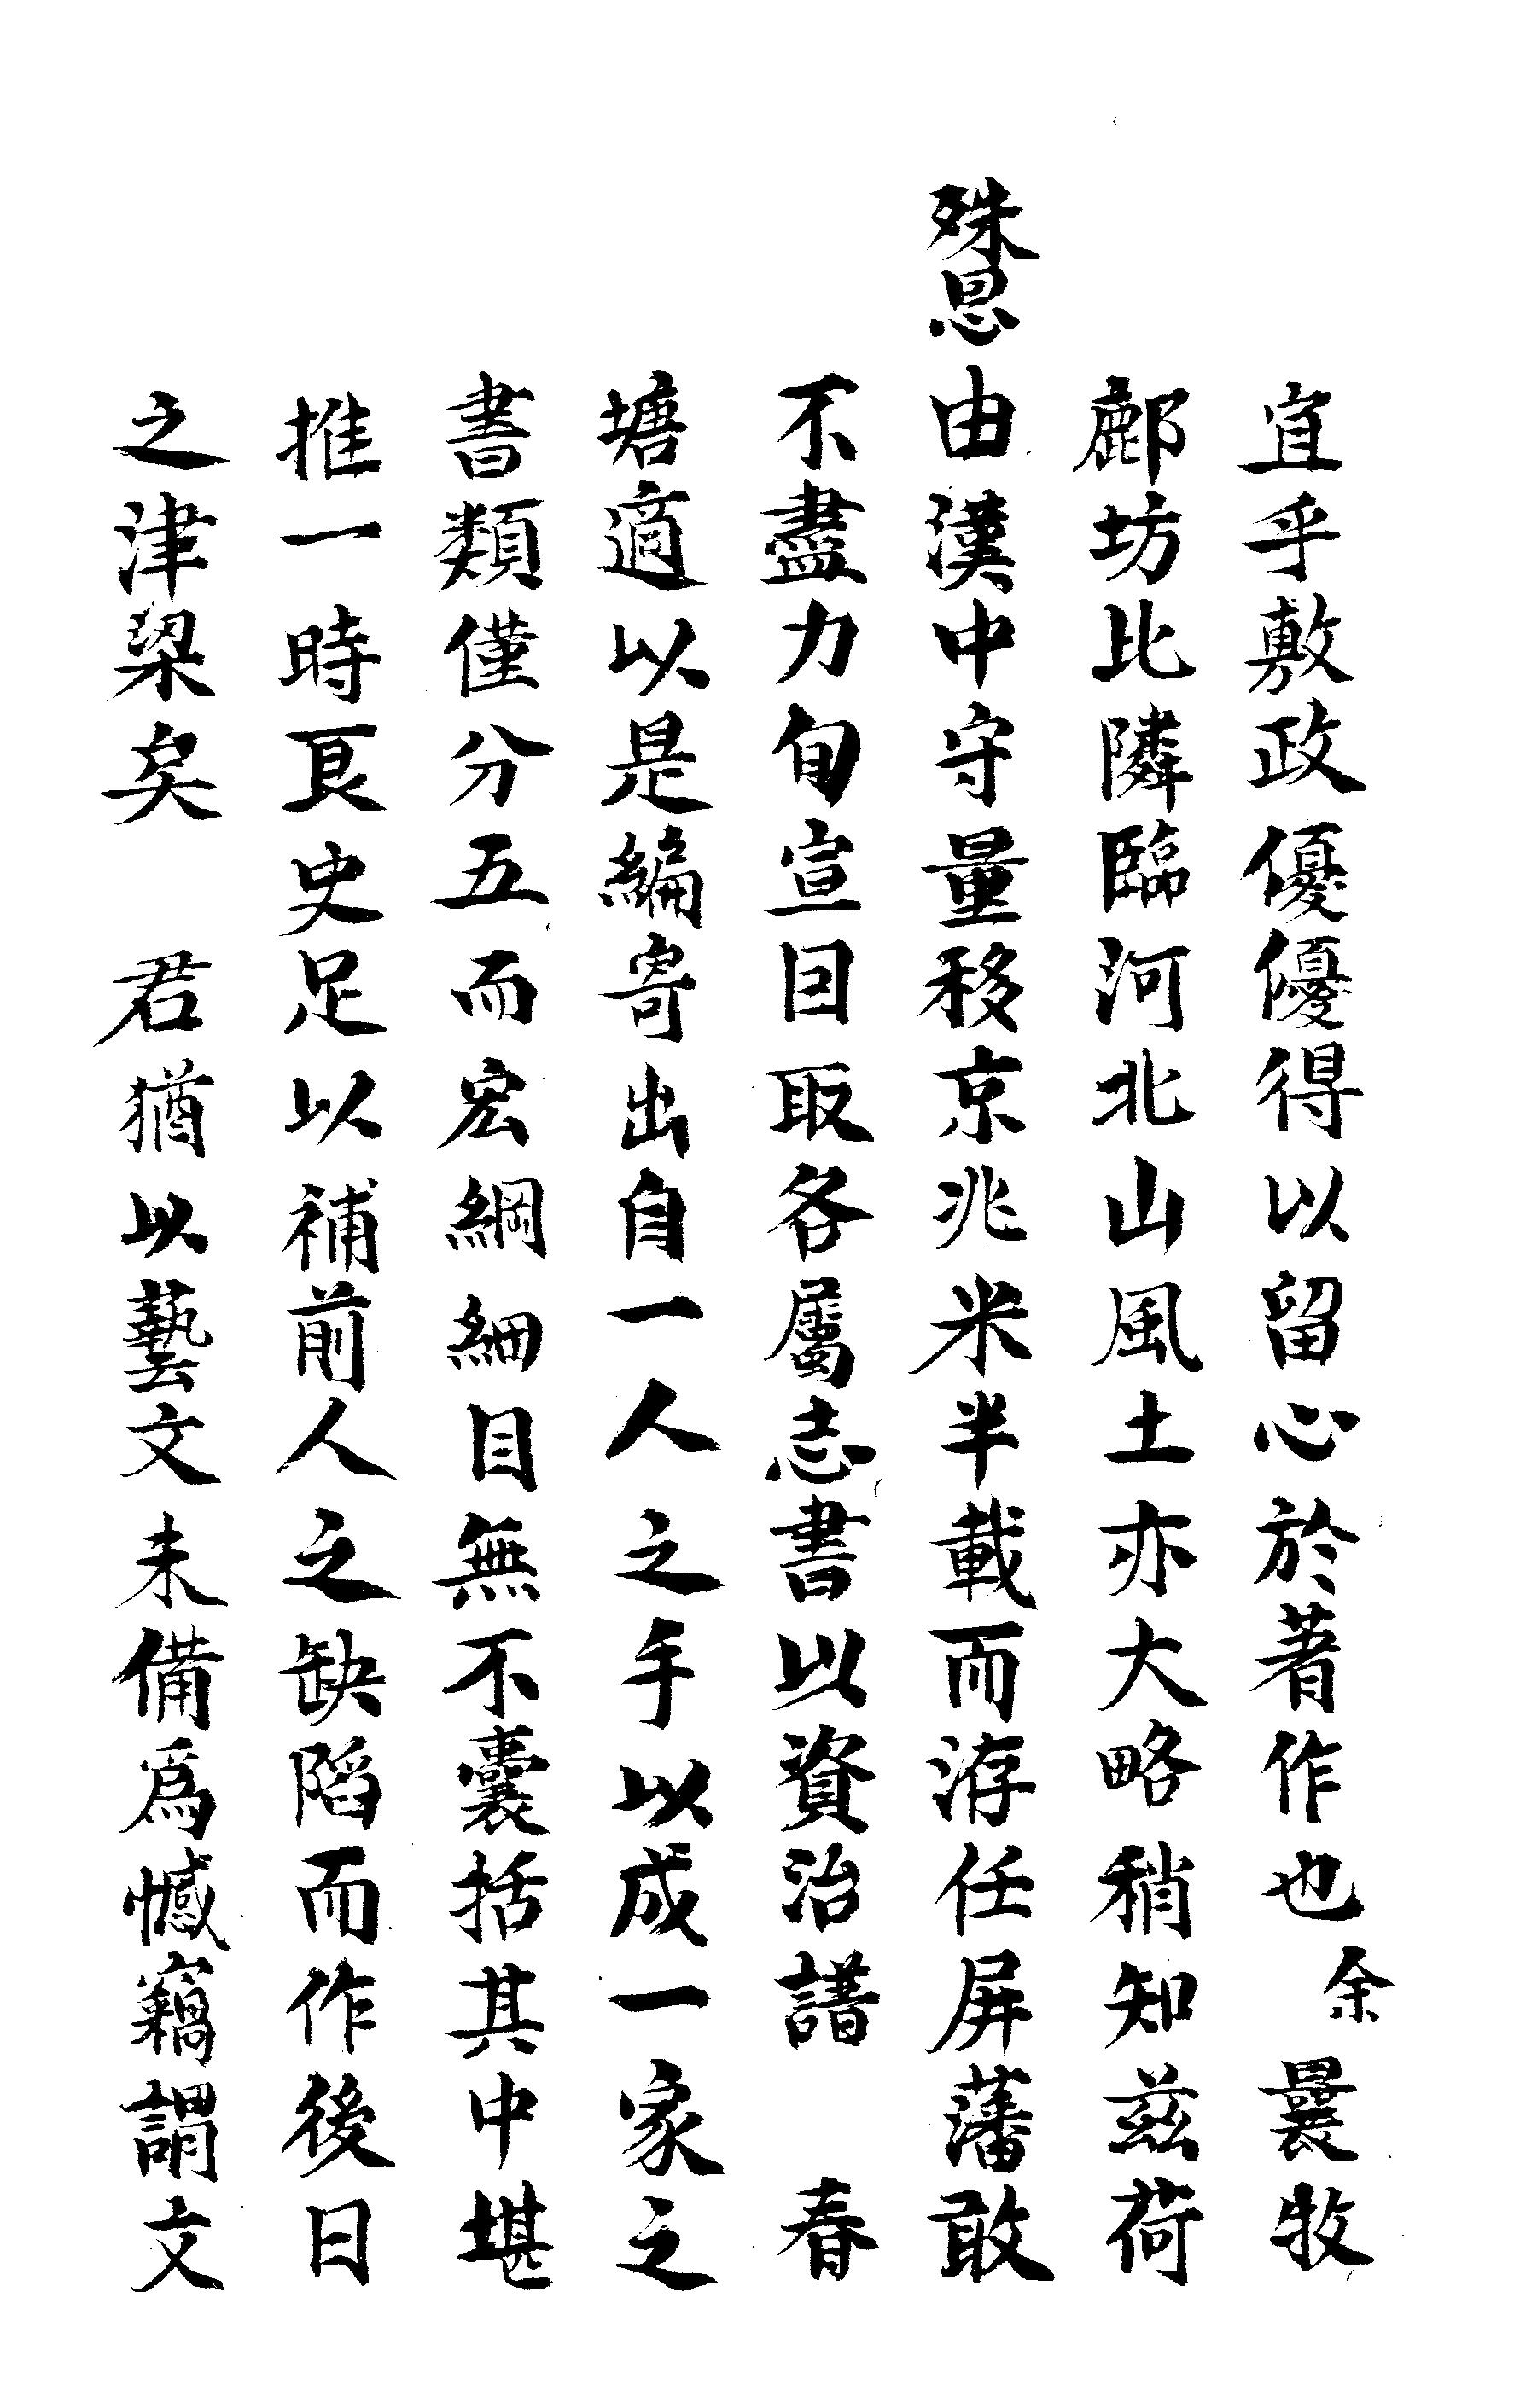 宜乎敷政優優得以留心於著作也余曩牧
鄜坊比隣臨河北山風土亦大略稍知茲荷
殊恩由漢中守量移京兆米半載而洊任屏藩敢
不盡力旬宣因取各屬志書以資治譜　春
塘適以是編寄出自一人之手以成一家之
書類僅分五而宏綱細目無不囊括其中堪
推一時良史足以補前人之缺陷而作後日
之津梁矣　君猶以藝文未備爲憾竊謂文